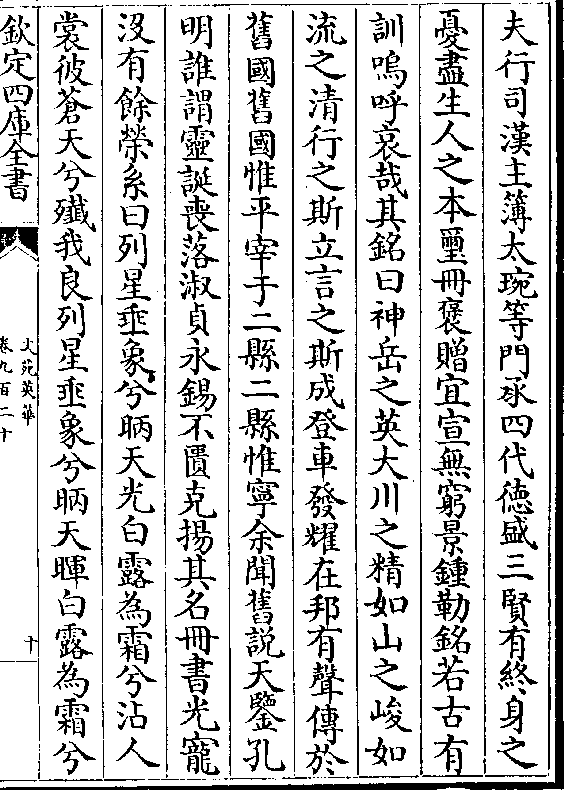 夫行司漢主簿太琬等門承四代德盛三賢有終身之
憂盡生人之本璽冊褒贈宜宣無窮景鍾勒銘若古有
訓嗚呼哀哉其銘曰神岳之英大川之精如山之峻如
流之清行之斯立言之斯成登車發耀在邦有聲傳於
舊國舊國惟平宰于二縣二縣惟寧余聞舊説天鑒孔
明誰謂靈誕喪落淑貞永錫不匱克揚其名冊書光寵
沒有餘榮系曰列星垂象兮昞天光白露為霜兮沾人
裳彼蒼天兮殲我良列星垂象兮昞天暉白露為霜兮
欽定四庫全書
文苑英華
卷九百二十
十